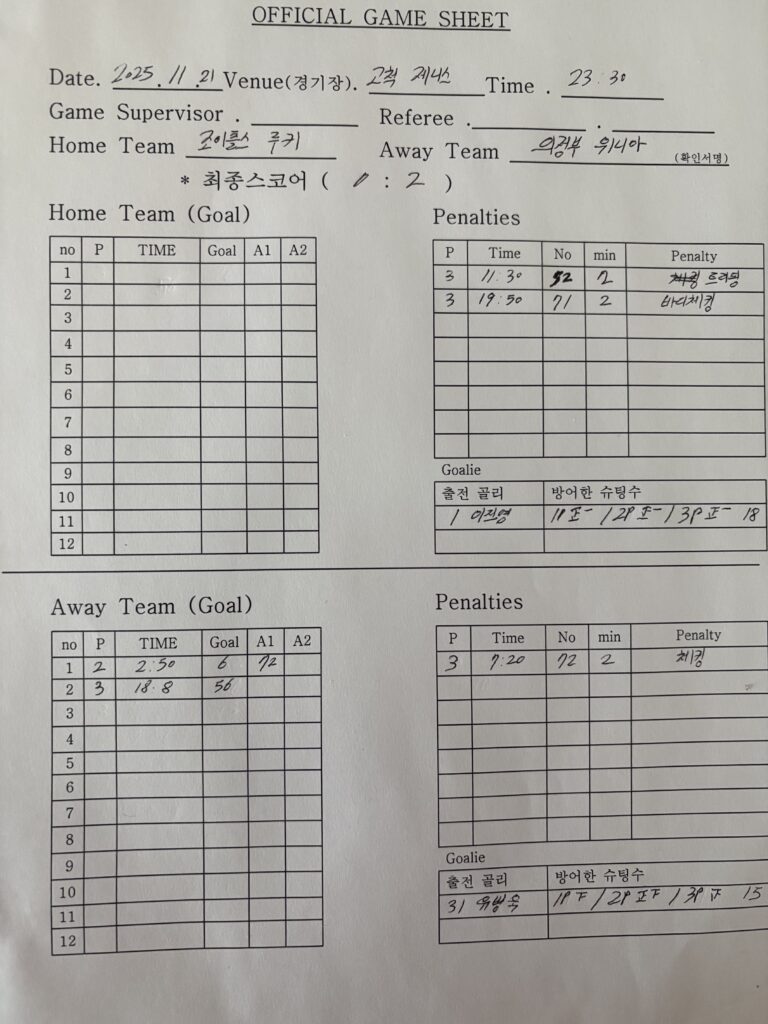 OFFICIAL GAME SHEET
Date. 2025. 11. 21 Venue(경기장). 고척 제니스 Time . 23:30
Game Supervisor . Referee . .
Home Team 조이플스 루키 Away Team 의정부 위니아 (확인서명)
* 최종스코어 ( 0 : 2 )
Home Team (Goal)
no P TIME Goal A1 A2
1
2
3
4
5
6
7
8
9
10
11
12
Penalties
P Time No min Penalty
3 11:30 52 2 트리핑
3 19:50 71 2 바디체킹
Goalie
출전 골리 방어한 슈팅수
1 1P / 2P / 3P 18
Away Team (Goal)
no P TIME Goal A1 A2
1 2 2:50 6 72
2 3 18:8 56
3
4
5
6
7
8
9
10
11
12
Penalties
P Time No min Penalty
3 7:20 72 2 체킹
Goalie
출전 골리 방어한 슈팅수
31 1P / 2P / 3P 15